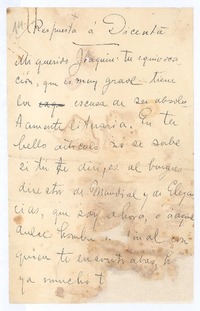 Respuesta á Dicenta
Mi querido Joaquin: tu equivoca
ción, que es muy grave tiene
la escusa de ser absolu
tamente literaria. En tu
bello artículo no se sabe
si tú te diriges al buen
director de Mundial y de Elegan
cias, que soy ahora, o a aquel
hombre con
quien te encontrabas,
ya mucho t